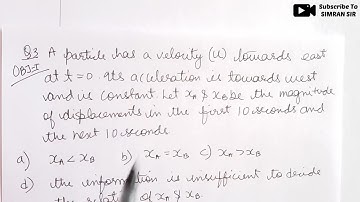 Subscribe To
SIMRAN SIR
Q3 A particle has a velocity (u) towards east
OBJ-I at t=0. Its acceleration is towards west
and is constant. Let xA & xB be the magnitude
of displacements in the first 10 seconds and
the next 10 seconds
a) xA < xB b) xA = xB c) xA > xB
d) the information is insufficient to decide
the relation of xA & xB.